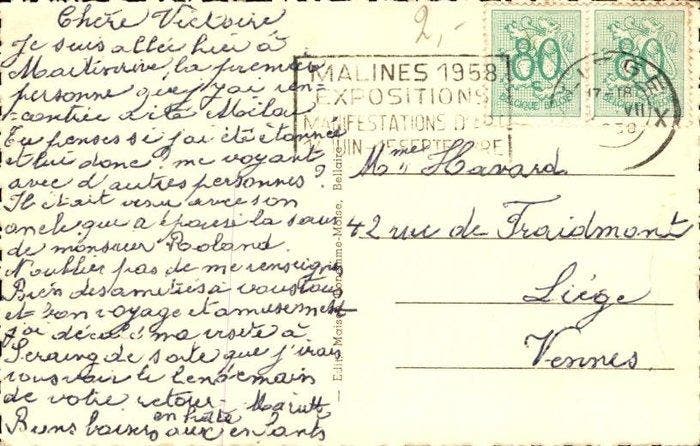 Chère Victoire
Je suis allée hier à
Martinrive la première
personne que j'y ai ren-
contrée
Tu penses si j'ai été étonnée
et lui donc? me voyant
avec d'autres personnes?
Il était venu avec son
oncle qui a épousé la sœur
de monsieur Roland.
N'oublier pas de me renseigner
Bien des amitiés à vous tous
et bon voyage et amusement
j'ai décalé ma visite à
Seraing de sorte que j'irais
vous voir le lendemain
de votre retour.
en hâte
Bons baisers aux enfants
2,-
80 80
BELGIQUE BELGIË
MALINES 1958
EXPOSITIONS
MANIFESTATIONS D'ART
JUIN - SEPTEMBRE
17-18
VII
Mme Havard
42 rue de Fraidmont
Liège
Vennes.
Bellaire